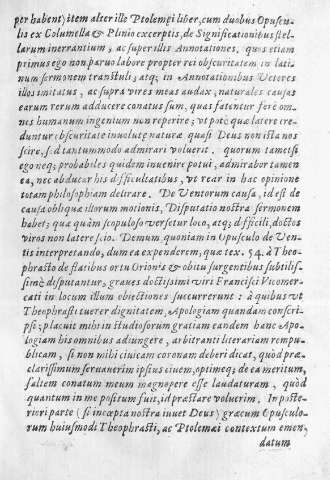 per habent) item alter ille Ptolemęi liber, cum duobus Opuscu-
lis ex Columella & Plinio excerptis, de Significationibus stel-
larum inerrantium, ac super illis Annotationes. quos etiam
primus ego non paruo labore propter rei obscuritatem in lati-
num sermonem transtuli; atq; in Annotationibus Veteres
illos imitatus, ac supra vires meas audax; naturales causas
earum rerum adducere conatus sum, quas fatentur ferè om-
nes humanum ingenium non reperire; vt potè quæ latere cre-
duntur obscuritate inuolutę naturæ quasi Deus non ista nos
scire, sed tantummodo admirari voluerit. quorum tametsi
ego neq; probabiles quidem inuenire potui, admirabor tamen
ea, nec abducar his difficultatibus, vt rear in hac opinione
totam philosophiam delirare. De Ventorum causa, id est de
causa obliquæ illorum motionis, Disputatio nostra sermonem
habet; quæ quàm scopuloso versetur loco, atq; difficili, doctos
viros non latere scio. Demum quoniam in Opusculo de Ven-
tis interpretando, dum ea expenderem, quæ tex. 54. à Theo-
phrasto de flatibus ortu Orionis & obitu surgentibus subtilis-
simè disputantur, graues doctissimi viri Francisci Vicomer-
cati in locum illum obiectiones succurrerunt: à quibus vt
Theophrasti tuerer dignitatem, Apologiam quandam conscri-
psi; placuit mihi in studiosorum gratiam eandem hanc Apo-
logiam his omnibus adiungere, arbitranti literariam rempu-
blicam, si non mihi ciuicam coronam deberi dicat, quòd præ-
clarissimum seruauerim ipsius ciuem, optimeq; de ea meritum,
saltem conatum meum magnopere esse laudaturam, quòd
quantum in me positum suit, id præstare voluerim. In poste-
riori parte (si incæpta nostra iuuet Deus) græcum Opusculo-
rum huiusmodi Theophrasti, ac Ptolemæi contextum emen-
datum